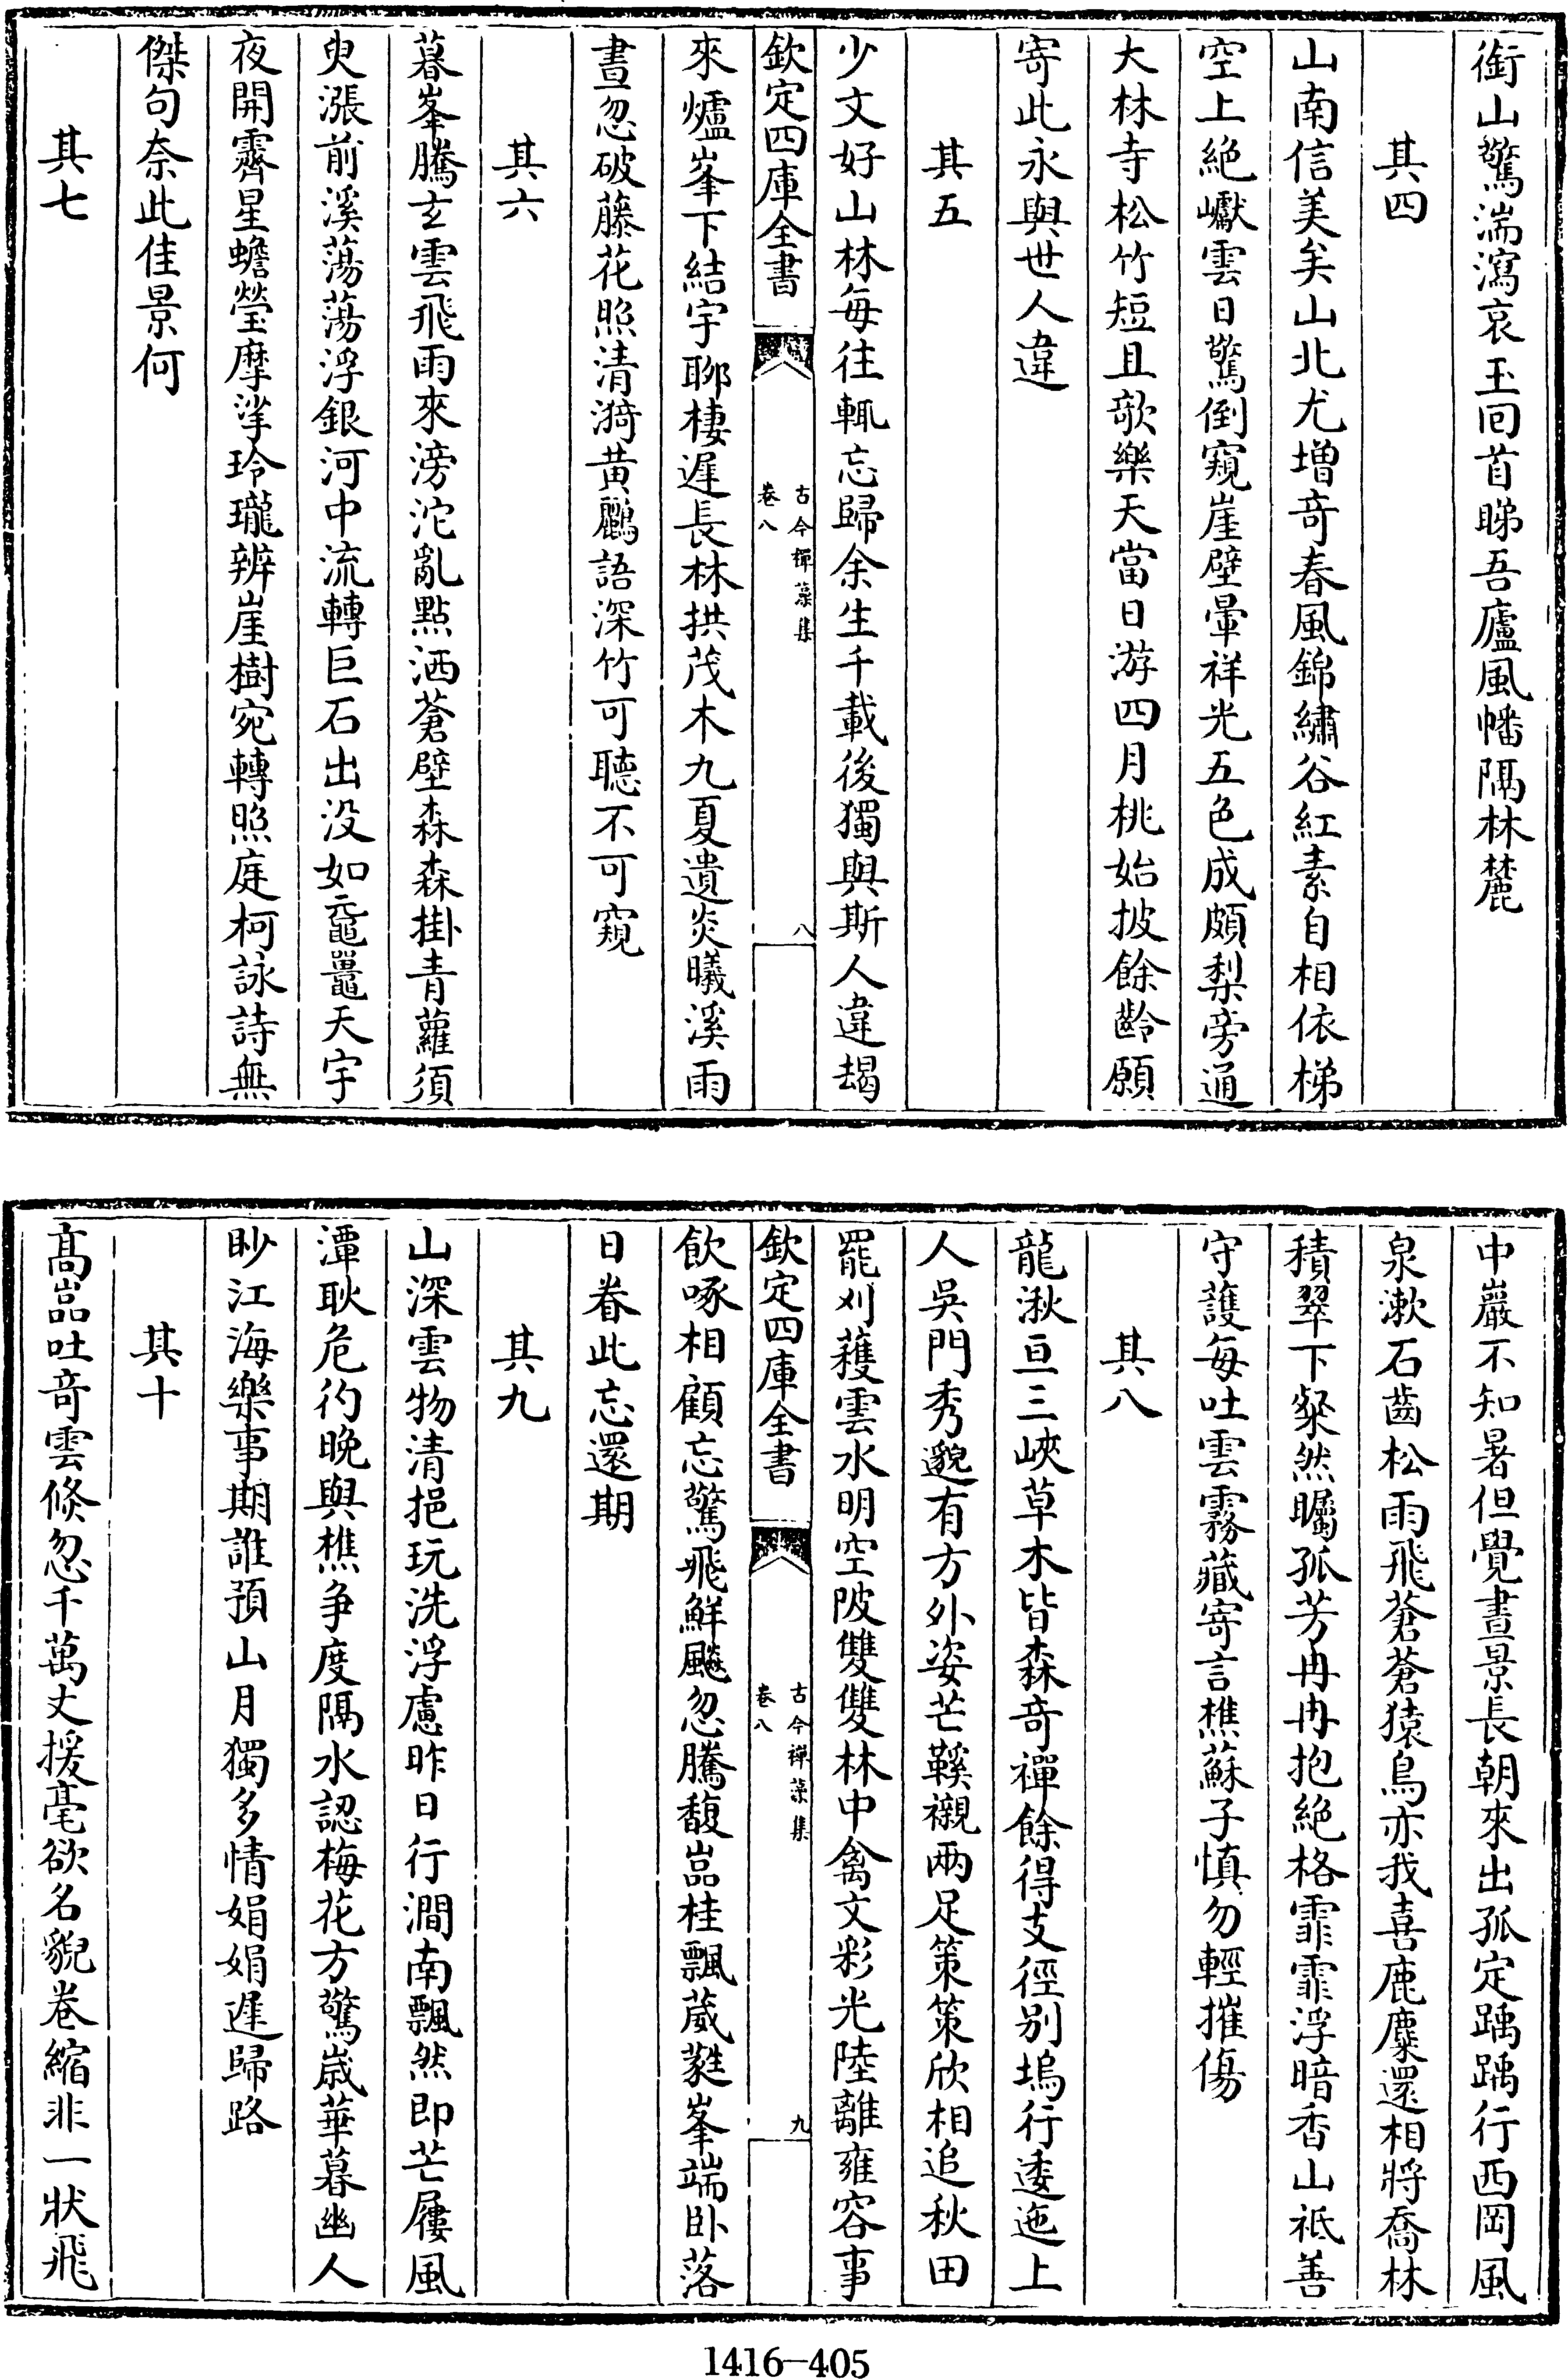 銜山驚湍瀉哀玉回首睇吾廬風幡隔林麓
其四
山南信美矣山北尤增奇春風錦繡谷紅素自相依梯
空上絕巘雲日驚倒窺崖壁暈祥光五色成頗梨旁通
大林寺松竹短且欹樂天當日游四月桃始披餘齡願
寄此永與世人違
其五
少文好山林每往輒忘歸余生千載後獨與斯人違朅
欽定四庫全書
古今禪藻集
卷八
八
來爐峯下結宇聊棲遲長林拱茂木九夏遺炎曦溪雨
晝忽破藤花照清漪黃鸝語深竹可聽不可窺
其六
暮峯騰玄雲飛雨來滂沱亂點洒蒼壁森森掛青蘿須
臾漲前溪蕩蕩浮銀河中流轉巨石出沒如黿鼉天宇
夜開霽星蟾瑩摩挲玲瓏辨崖樹宛轉照庭柯詠詩無
傑句奈此佳景何
其七
中巖不知暑但覺晝景長朝來出孤定踽踽行西岡風
泉漱石齒松雨飛蒼蒼猿鳥亦我喜鹿麋還相將喬林
積翠下粲然矚孤芳冉冉抱絕格霏霏浮暗香山祗善
守護每吐雲霧藏寄言樵蘇子慎勿輕摧傷
其八
龍湫亘三峽草木皆森奇禪餘得支徑別塢行逶迤上
人吳門秀邈有方外姿芒鞵襯兩足策策欣相追秋田
罷刈穫雲水明空陂雙雙林中禽文彩光陸離雍容事
欽定四庫全書
古今禪藻集
卷八
九
飲啄相顧忘驚飛鮮飈忽騰馥嵓桂飄葳蕤峯端卧落
日眷此忘還期
其九
山深雲物清挹玩洗浮慮昨日行澗南飄然即芒屨風
潭耿危彴晚與樵爭度隔水認梅花方驚歲華暮幽人
眇江海樂事期誰預山月獨多情娟娟遲歸路
其十
高嵓吐奇雲倐忽千萬丈援毫欲名貌卷縮非一狀飛
1416-405